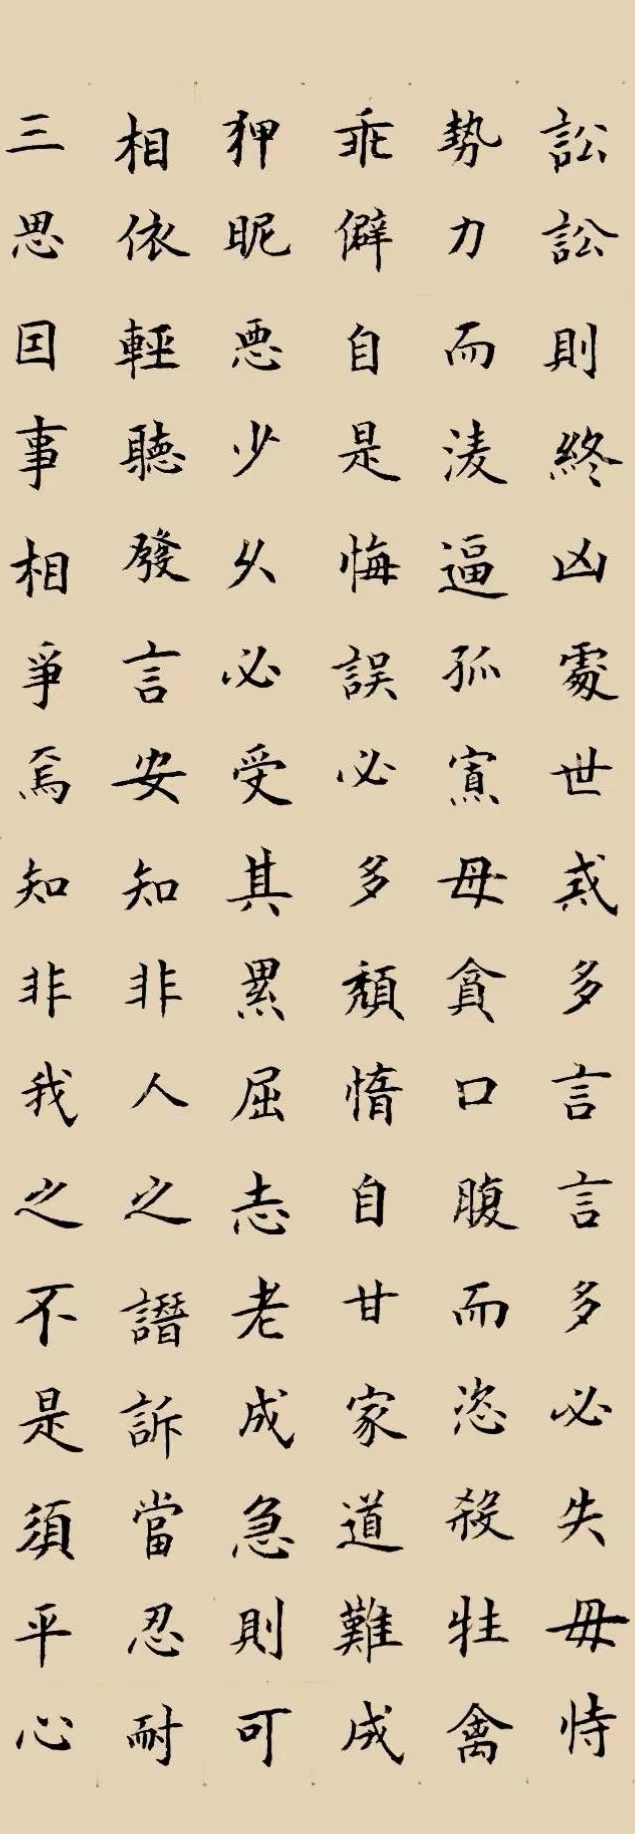 訟訟則終凶處世戒多言言多必失毋恃
勢力而淩逼孤寡毋貪口腹而恣殺牲禽
乖僻自是悔誤必多頹惰自甘家道難成
狎昵惡少久必受其累屈志老成急則可
相依輕聽發言安知非人之譖訴當忍耐
三思因事相爭焉知非我之不是須平心